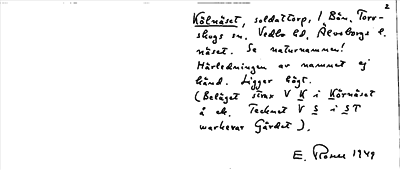 2
Kölnäset, soldattorp, / Bön. Torr-
skogs sn. Vedbo hd. Älvsborgs l.
näset. Se naturnamnen!
Härledningen av namnet ej
känd. Ligger högt.
(Beläget strax V K i Körnäset
å ek. Tecknet V S i ST
markerar Gärdet).
E. Rosell 1949